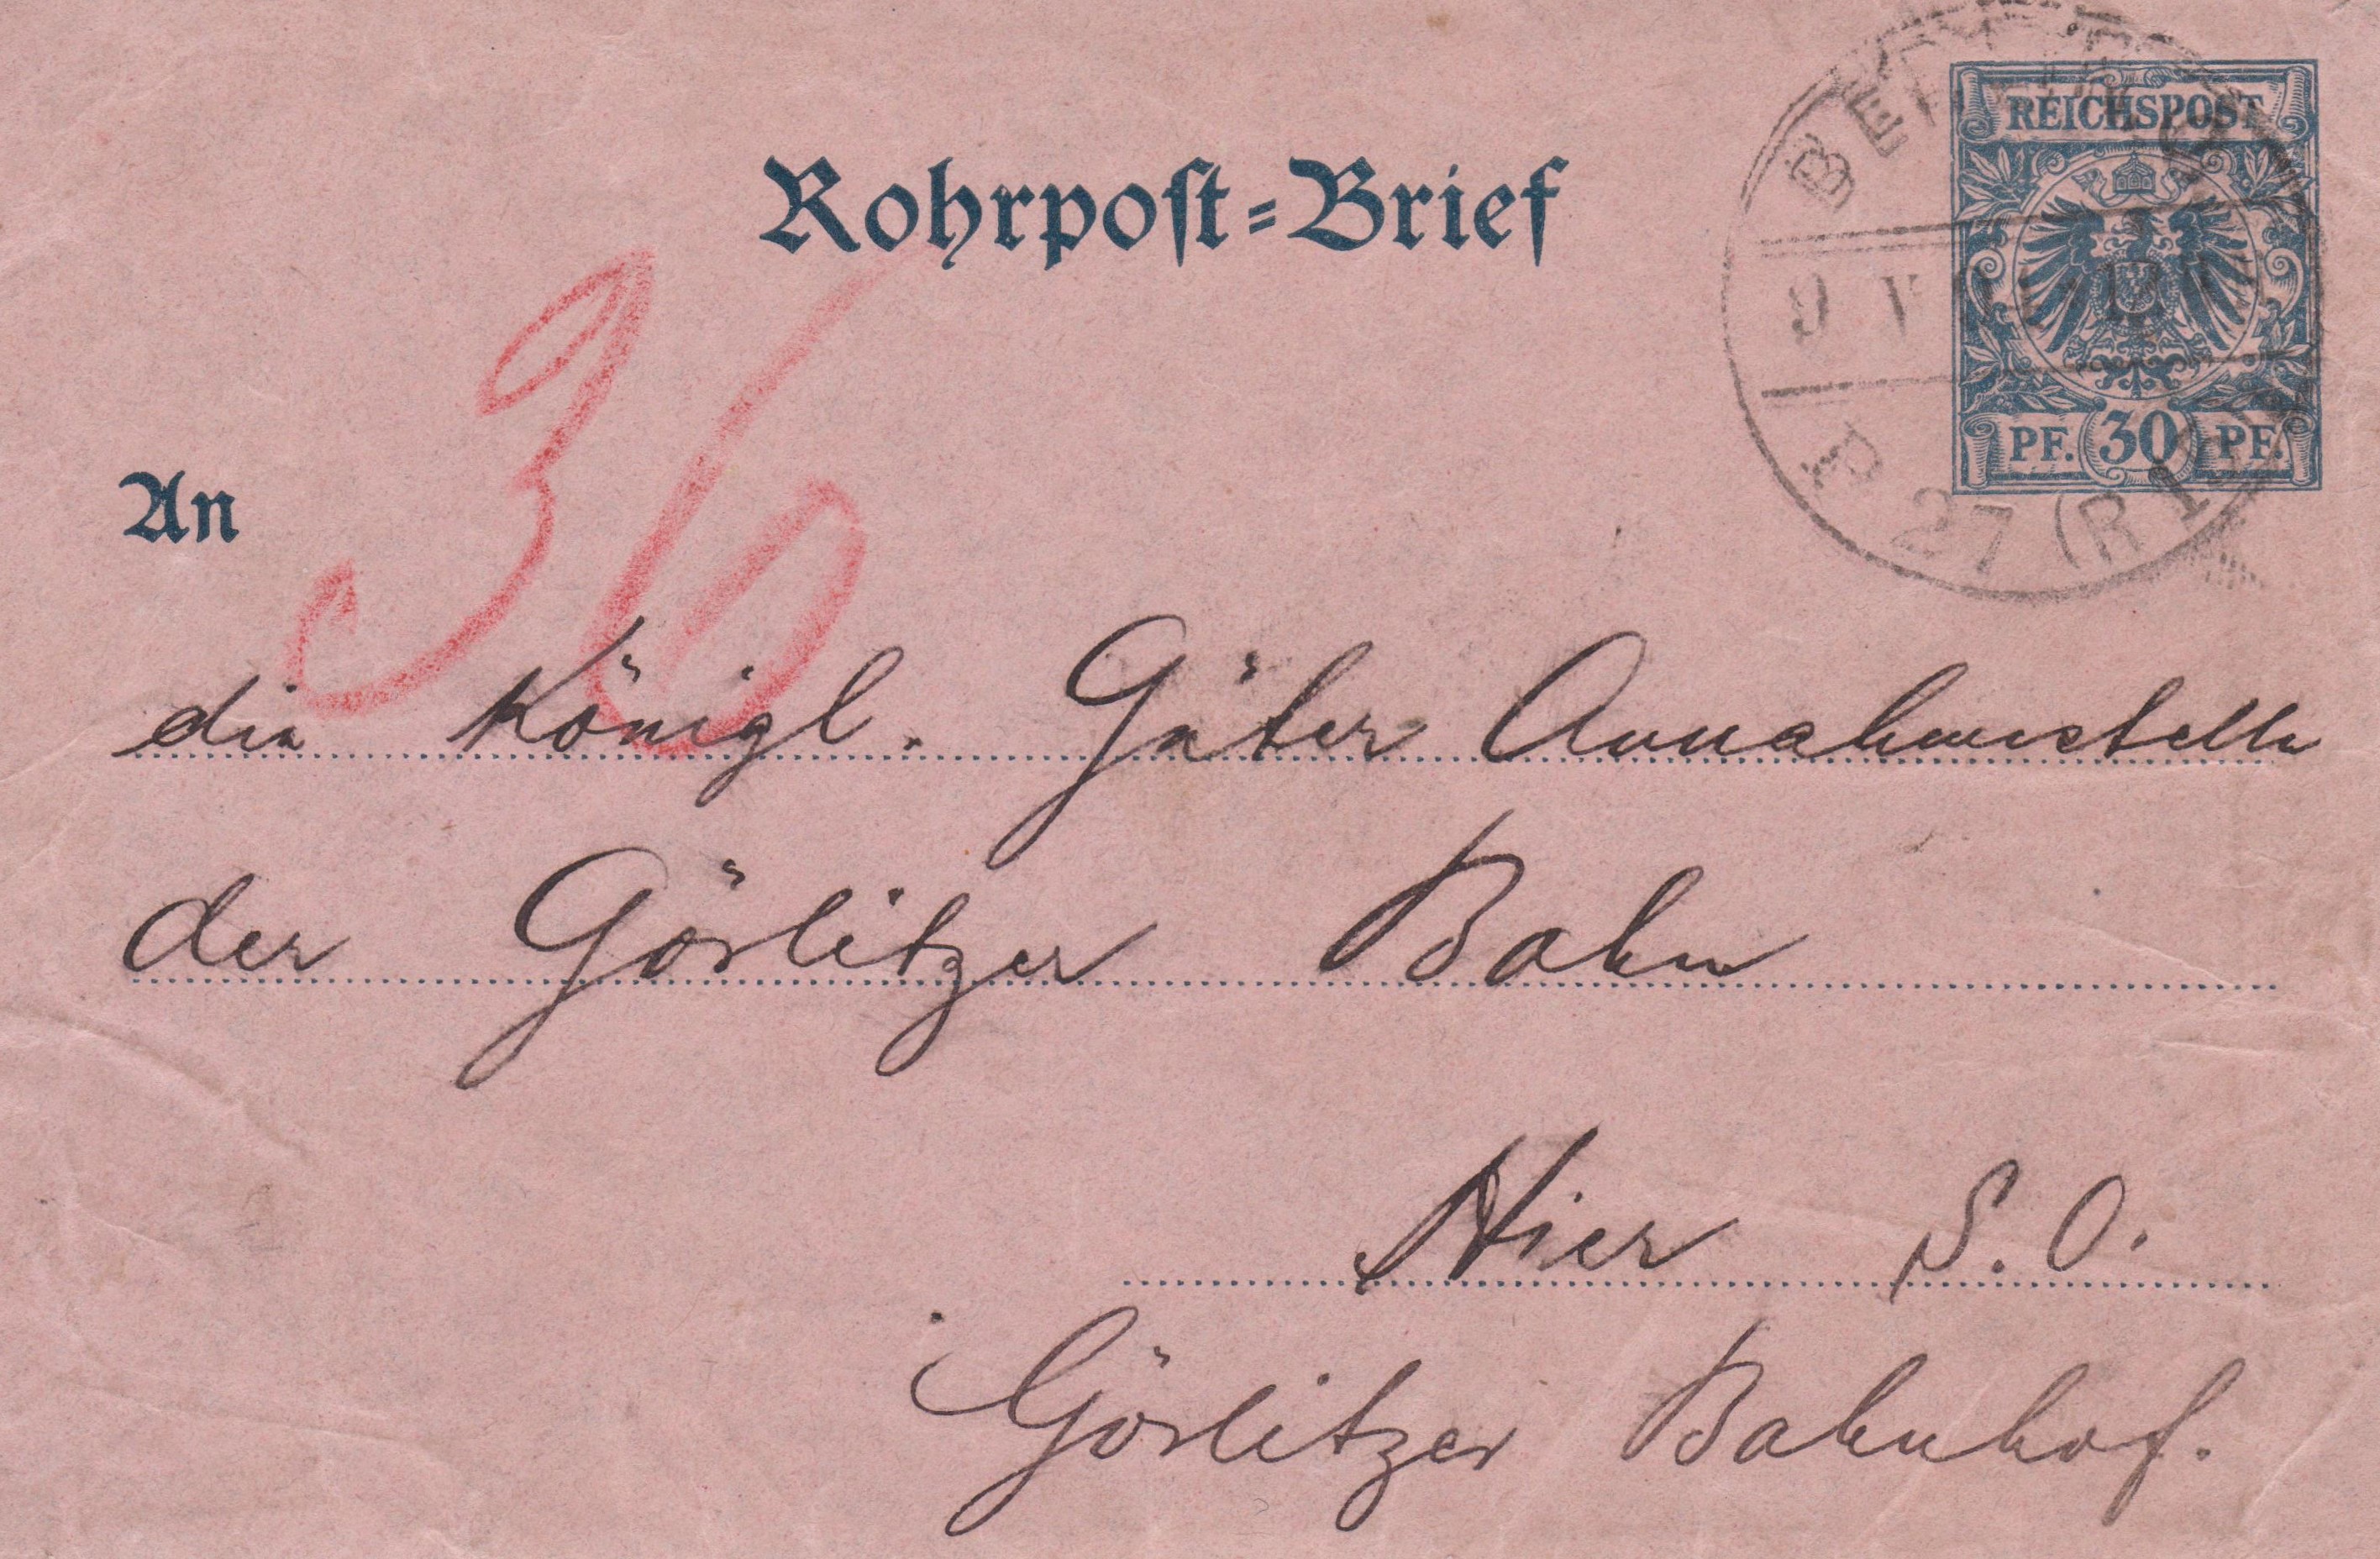 Rohrpost-Brief
REICHSPOST
PF. 30 PF.
BERLIN
9
P 27 (R
36
An
die Königl. Güter Annahmestelle
der Görlitzer Bahn
Hier S. O.
Görlitzer Bahnhof.